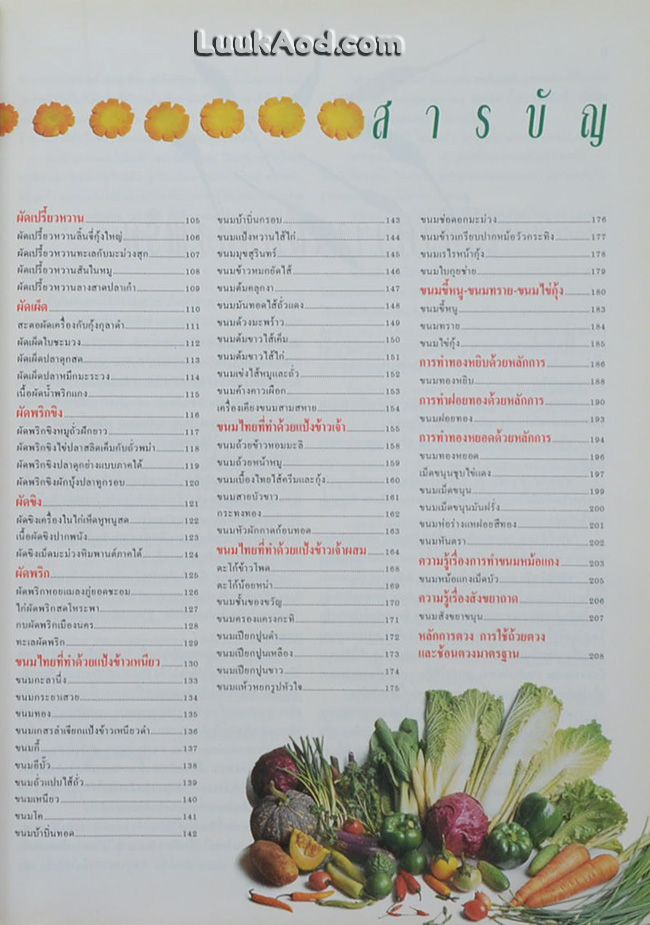 LuukAod.com
สารบัญ
ผัดเปรี้ยวหวาน 105
ผัดเปรี้ยวหวานลิ้นจี่กุ้งใหญ่ 106
ผัดเปรี้ยวหวานทะเลกับมะม่วงสุก 107
ผัดเปรี้ยวหวานสันในหมู 108
ผัดเปรี้ยวหวานลางสาดปลาเก๋า 109
ผัดเผ็ด 110
สะตอผัดเครื่องกับกุ้งกุลาดำ 111
ผัดเผ็ดใบชะมวง 112
ผัดเผ็ดปลาดุกสด 113
ผัดเผ็ดปลาหมึกมะระวง 114
เนื้อผัดน้ำพริกแกง 115
ผัดพริกขิง 116
ผัดพริกขิงหมูถั่วฝักยาว 117
ผัดพริกขิงไข่ปลาสลิดเค็มกับถั่วพม่า 118
ผัดพริกขิงปลาดุกย่างแบบภาคใต้ 119
ผัดพริกขิงผักบุ้งปลาทูกรอบ 120
ผัดขิง 121
ผัดขิงเครื่องในไก่เห็ดหูหนูสด 122
เนื้อผัดขิงปากพนัง 123
ผัดขิงเม็ดมะม่วงหิมพานต์ภาคใต้ 124
ผัดพริก 125
ผัดพริกหอยแมลงภู่ยอดชะอม 126
ไก่ผัดพริกสดโหระพา 127
กบผัดพริกเมืองนคร 128
ทะเลผัดพริก 129
ขนมไทยที่ทำด้วยแป้งข้าวเหนียว 130
ขนมกะลานึ่ง 133
ขนมกระยาสวย 134
ขนมทอง 135
ขนมเกสรลำเจียกแป้งข้าวเหนียวดำ 136
ขนมกี๋ 137
ขนมอีบั๋ว 138
ขนมถั่วแปบไส้ถั่ว 139
ขนมเหนียว 140
ขนมโค 141
ขนมบ้าบิ่นทอด 142
ขนมบ้าบิ่นกรอบ 143
ขนมแป้งหวานไส้ไก่ 144
ขนมมุขสุรินทร์ 145
ขนมข้าวหมกยัดไส้ 146
ขนมต้มคลุกงา 147
ขนมมันทอดไส้ถั่วแดง 148
ขนมด้วงมะพร้าว 149
ขนมต้มขาวไส้เค็ม 150
ขนมต้มขาวไส้ไก่ 151
ขนมเข่งไส้หมูและถั่ว 152
ขนมค้างคาวเผือก 153
เครื่องเคียงขนมสามสหาย 154
ขนมไทยที่ทำด้วยแป้งข้าวเจ้า 155
ขนมถ้วยข้าวหอมมะลิ 158
ขนมถ้วยหน้าหมู 159
ขนมเบื้องไทยไส้ครีมและกุ้ง 160
ขนมสายบัวขาว 161
กระทงทอง 162
ขนมหัวผักกาดก้อนทอด 163
ขนมไทยที่ทำด้วยแป้งข้าวเจ้าผสม 164
ตะโก้ข้าวโพด 168
ตะโก้น้อยหน่า 169
ขนมชั้นของขวัญ 170
ขนมครองแครงกะทิ 171
ขนมเปียกปูนดำ 172
ขนมเปียกปูนเหลือง 173
ขนมเปียกปูนขาว 174
ขนมแห้วหยกรูปหัวใจ 175
ขนมช่อดอกมะม่วง 176
ขนมข้าวเกรียบปากหม้อวัวกระทิง 177
ขนมเรไรหน้ากุ้ง 178
ขนมใบกุยช่าย 179
ขนมขี้หนู-ขนมทราย-ขนมไข่กุ้ง 180
ขนมขี้หนู 183
ขนมทราย 184
ขนมไข่กุ้ง 185
การทำทองหยิบด้วยหลักการ 186
ขนมทองหยิบ 188
การทำฝอยทองด้วยหลักการ 190
ขนมฝอยทอง 193
การทำทองหยอดด้วยหลักการ 194
ขนมทองหยอด 196
เม็ดขนุนชุบไข่แดง 197
ขนมเม็ดขนุน 199
ขนมเม็ดขนุนมันฝรั่ง 200
ขนมห่อร่างแหฝอยสีทอง 201
ขนมหันตรา 202
ความรู้เรื่องการทำขนมหม้อแกง 203
ขนมหม้อแกงเม็ดบัว 205
ความรู้เรื่องสังขยาถาด 206
ขนมสังขยาขนุน 207
หลักการตวง การใช้ถ้วยตวง
และช้อนตวงมาตรฐาน 208